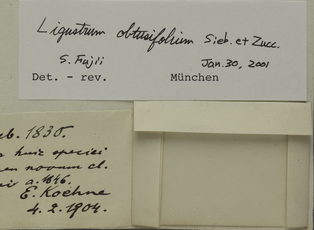 Ligustrum obtusifolium Sieb. et Zucc.
S. Fujii Jan. 30, 2001
Det. - rev. München
b. 1830.
huic speciei
en novum cl.
a. 1846.
E. Koehne
4. 2. 1904.